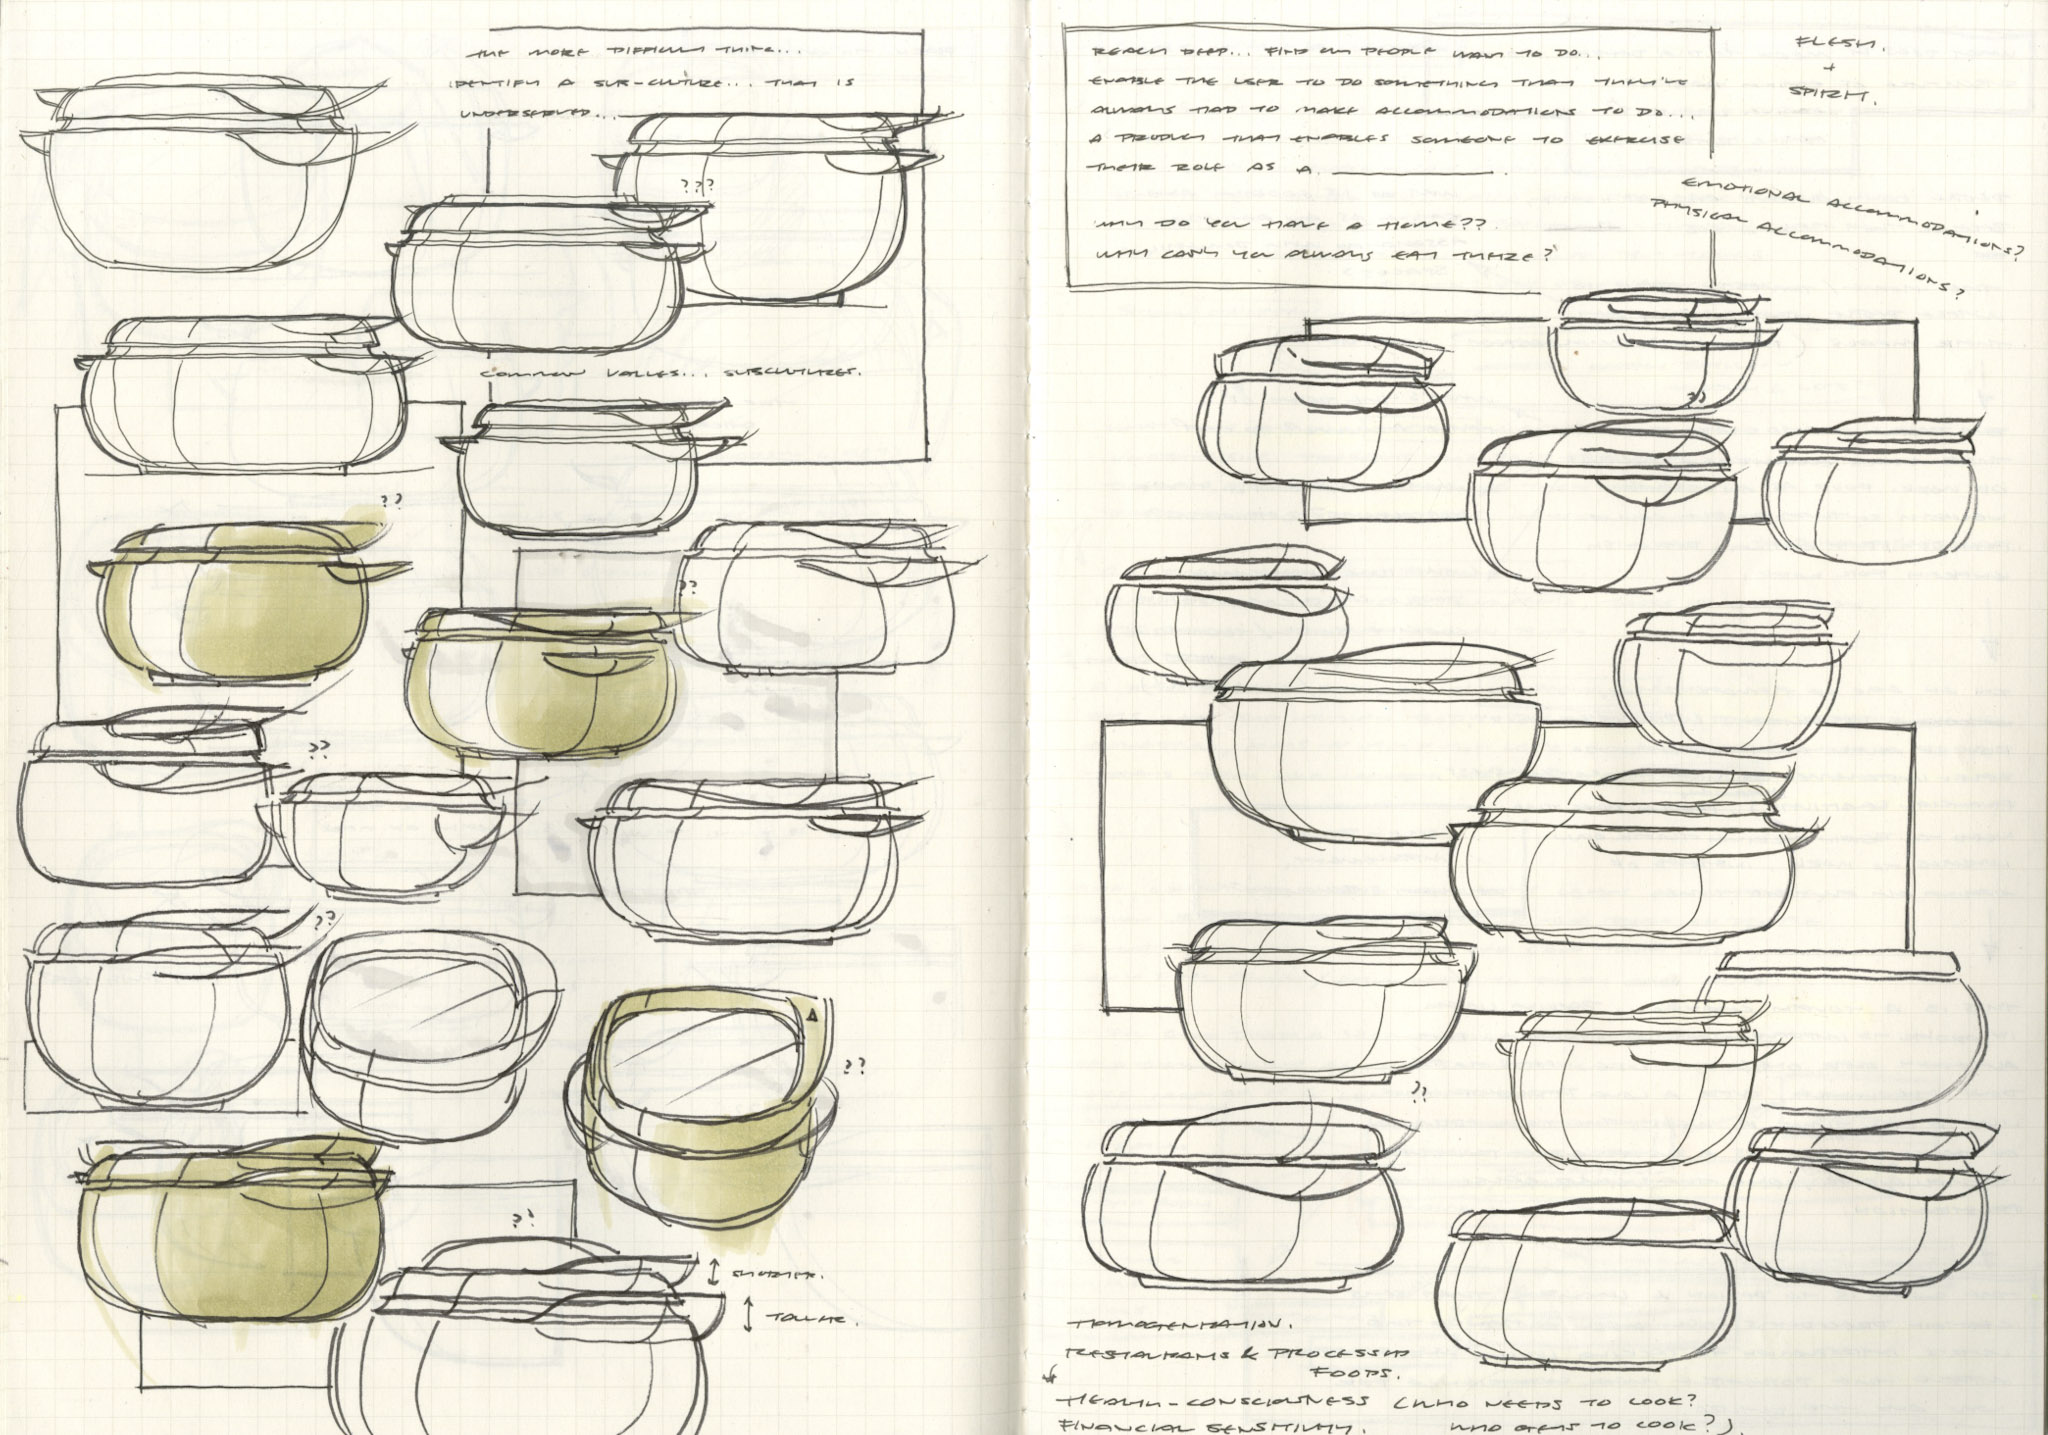 THE MORE DIFFICULT THING...
IDENTIFY A SUB-CULTURE... THAT IS
UNDERSERVED...
???
COMMON VALUES... SUBCULTURES.
??
??
??
??
??
??
SHORTER.
TALLER.
REACH DEEP... FIND PEOPLE WANT TO DO...
ENABLE THE USER TO DO SOMETHING THAT THEY'VE
ALWAYS HAD TO MAKE ACCOMMODATIONS TO DO...
A PRODUCT THAT ENABLES SOMEONE TO EXERCISE
THEIR ROLE AS A
WHY DO YOU HAVE A HOME??
WHY CAN'T YOU ALWAYS EAT THERE?
FLESH.
+
SPIRIT.
EMOTIONAL ACCOMMODATIONS?
PHYSICAL ACCOMMODATIONS?
??
??
HOMOGENIZATION.
RESTAURANTS & PROCESSED
FOODS.
HEALTH-CONSCIOUSNESS (WHO NEEDS TO COOK?
FINANCIAL SENSITIVITY. WHO GETS TO COOK?)